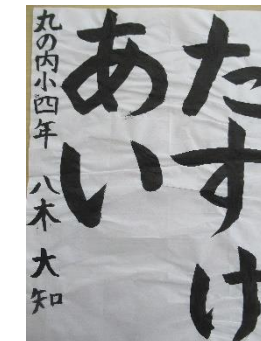 たすけ
あい
丸の内小四年 八木大知